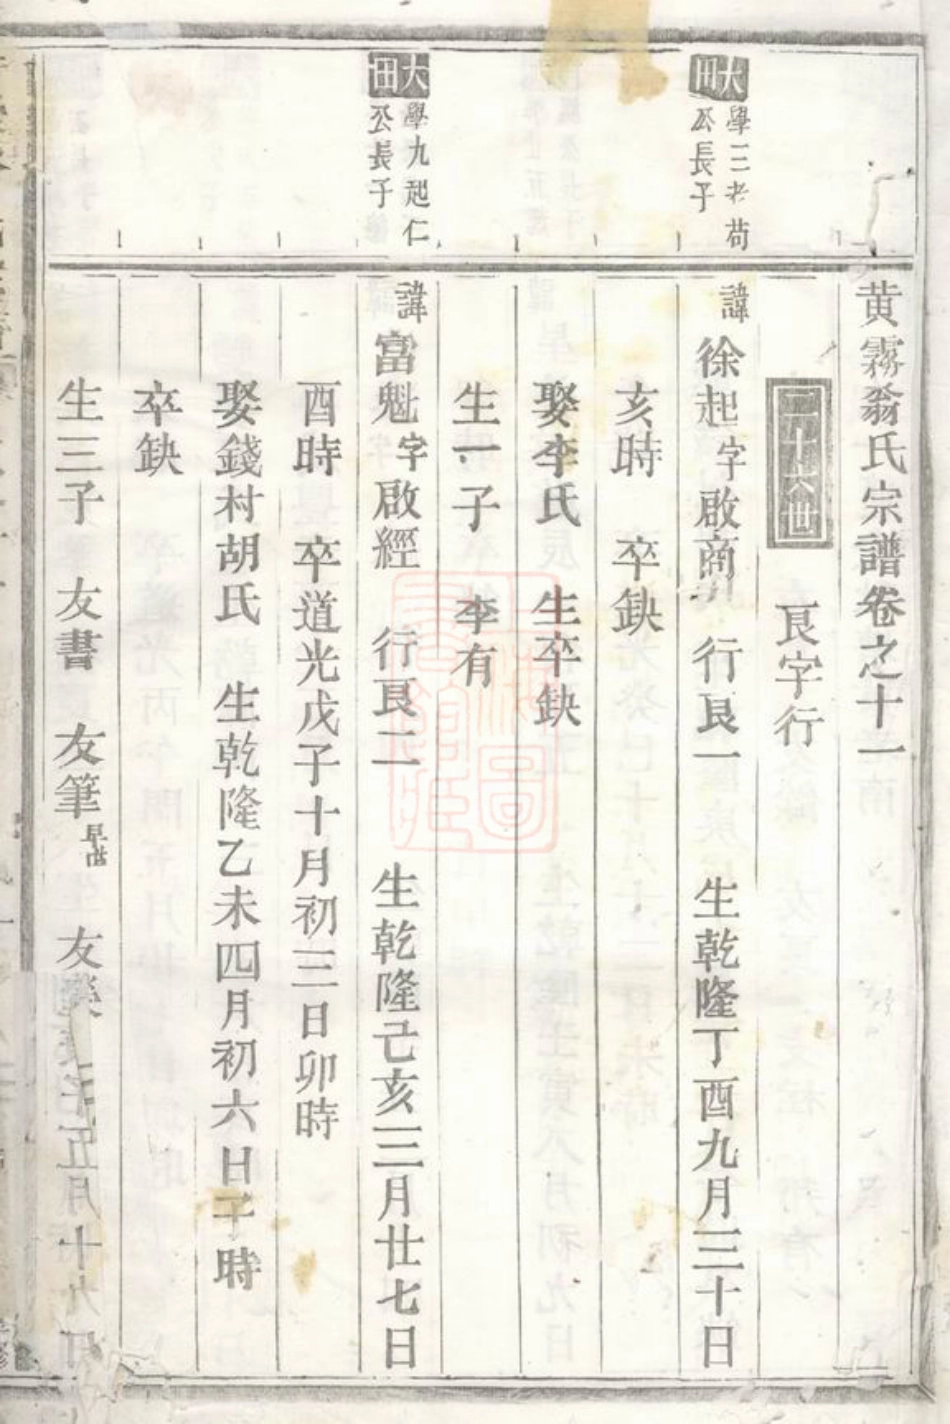 黄霧翁氏宗譜卷之十一
二十八世
艮字行
大田
學三老苟
公長子
諱徐起字啟商 行艮一 生乾隆丁酉九月三十日
亥時 卒缺
娶李氏 生卒缺
生一子 李有
大田
學九起仁
公長子
諱富魁字啟經 行艮二 生乾隆己亥三月廿七日
酉時 卒道光戊子十月初三日卯時
娶錢村胡氏 生乾隆乙未四月初六日子時
卒缺
生三子 友書 友筆 友